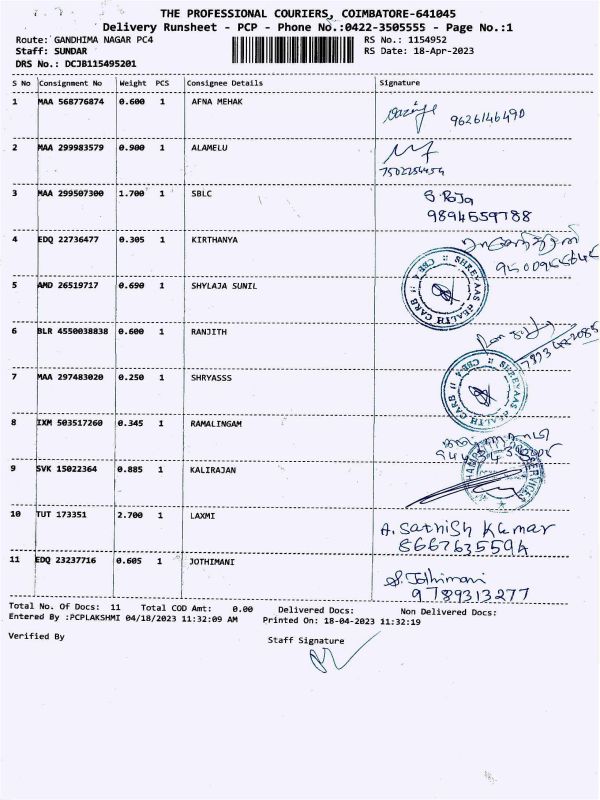 THE PROFESSIONAL COURIERS, COIMBATORE-641045
Delivery Runsheet - PCP - Phone No.:0422-3505555 - Page No.:1
Route: GANDHIMA NAGAR PC4
RS No.: 1154952
Staff: SUNDAR
RS Date: 18-Apr-2023
DRS No.: DCJB115495201
S No Consignment No Weight PCS Consignee Details Signature
1 MAA 568776874 0.600 1 AFNA MEHAK
9626146490
2 MAA 299983579 0.900 1 ALAMELU
7502254454
3 MAA 299507300 1.700 1 SBLC
S. Roja
9894659788
4 EDQ 22736477 0.305 1 KIRTHANYA
SHREYAAS HEALTH CARE CBE 4
5 AMD 26519717 0.690 1 SHYLAJA SUNIL
6 BLR 4550038838 0.600 1 RANJITH
7 MAA 297483020 0.250 1 SHRYASSS
SHREYAAS HEALTH CARE CBE 4
8 IXM 503517260 0.345 1 RAMALINGAM
9 SVK 15022364 0.885 1 KALIRAJAN
SERVICES
10 TUT 173351 2.700 1 LAXMI
A. Sathish Kumar
8667635594
11 EDQ 23237716 0.605 1 JOTHIMANI
S. Jothimani
9789313277
Total No. Of Docs: 11 Total COD Amt: 0.00 Delivered Docs: Non Delivered Docs:
Entered By :PCPLAKSHMI 04/18/2023 11:32:09 AM Printed On: 18-04-2023 11:32:19
Verified By Staff Signature